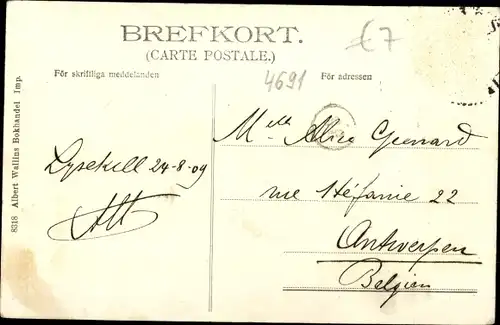 BREFKORT.
(CARTE POSTALE.)
£7
För skriftliga meddelanden
4691
För adressen
Lysekill 24-8-09
8318 Albert Wallins Bokhandel Imp.
Melle Alice Goenard
rue Stéfanie 22
Antwerpen
Belgien